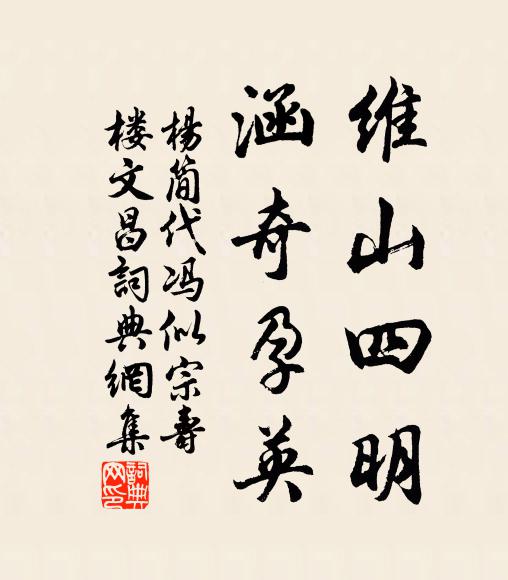 维山四明
涵奇孕英
杨简代冯似宗寿
楼文昌詞典網集
詞典网印